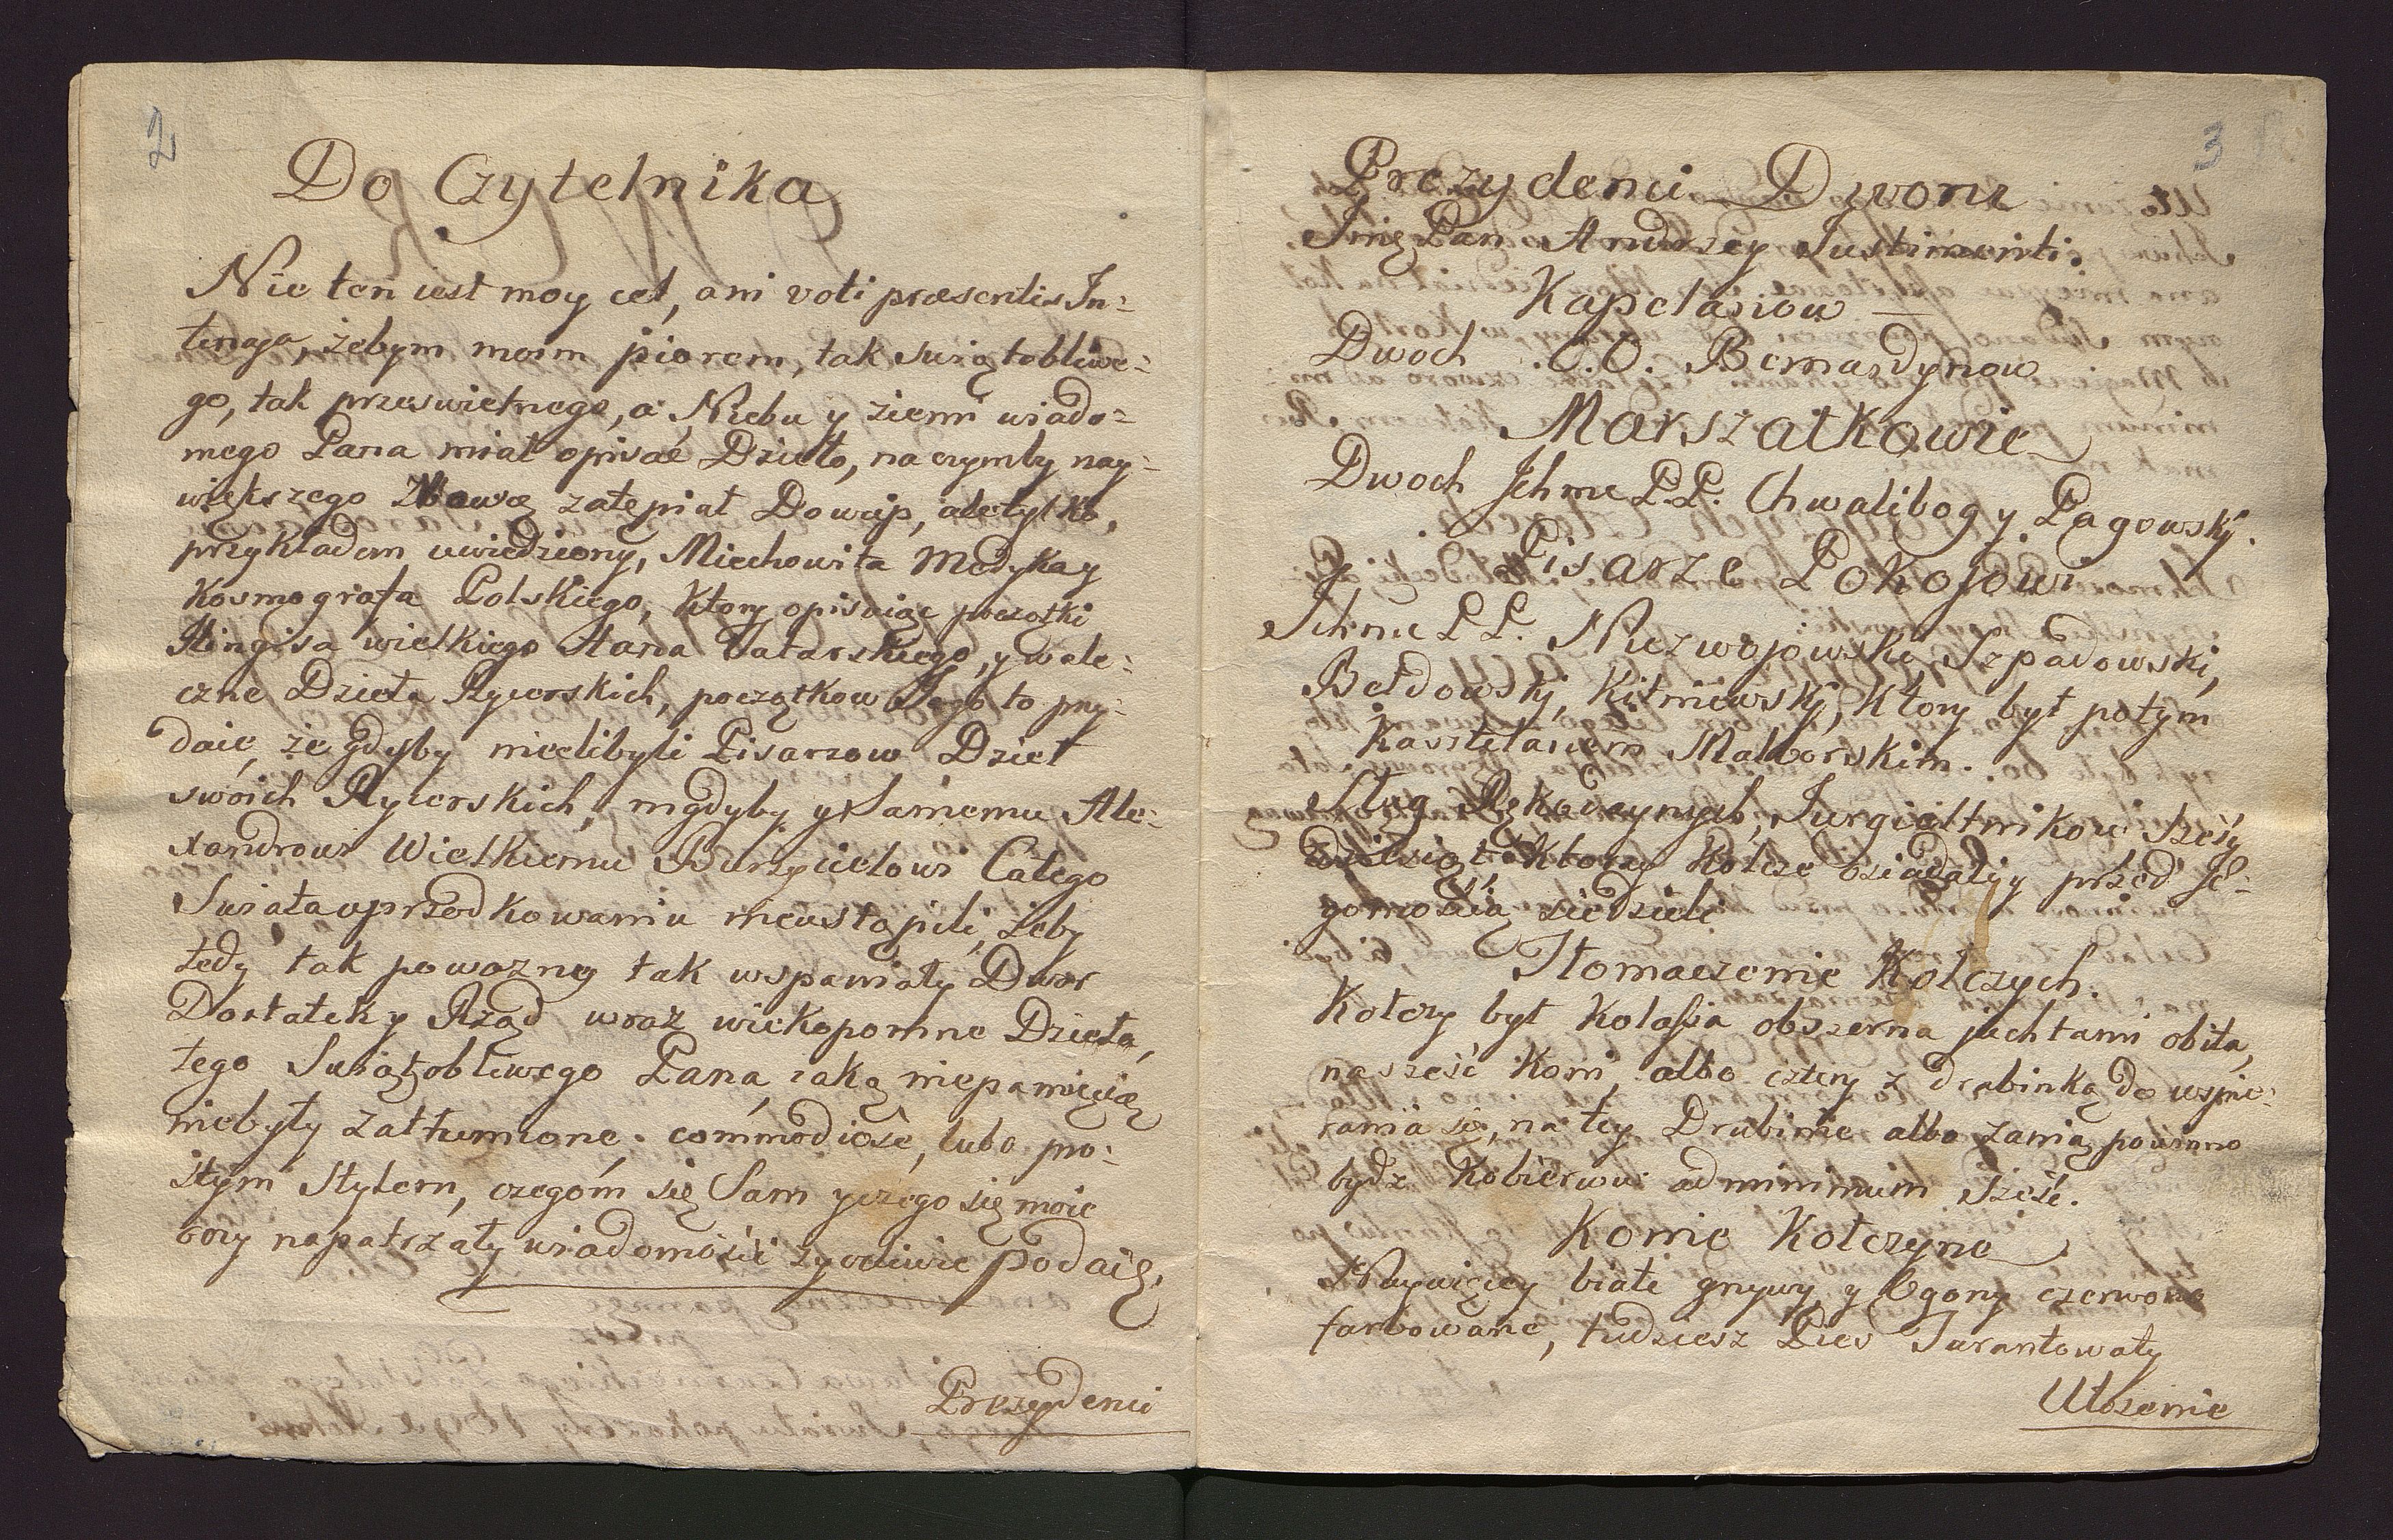 2
Do Czytelnika
Nie ten iest moy cel, ani voti præsentis In-
tencya, żebym moim piorem, tak swiątobliwe-
go, tak przeswietnego, a Niebu y ziemi wiado-
mego Pana miał opisać Dzieło, na czymby nay-
większego zatępiał Dowcip, ale tylko,
przykładem uwiedziony, Miechowita Medyka y
Kosmografa Polskiego, ktory opisuiąc początki
Hingisa wielkiego Hana Tatarskiego, y wale-
czne Dzieła Rycerskich, początkow Jego to przy-
daie, że gdyby mieli byli Pisarzow Dzieł
swoich Rycerskich, nigdyby y Samemu Ale-
xandrowi Wielkiemu Burzycielowi Całego
Swiata uprzodkowaniu nieustąpili, żeby
tedy tak poważny tak wspaniały Dwor
Dostatek y Rząd wraz wiekopomne Dzieła,
tego Swiątobliwego Pana, iaką niepamięcią
niebyły zattumione. commodiose, lubo pro-
stym Stylem, czegom się Sam y czego się moie
oczy napatrzały wiadomości życzliwie podaię.
Prezydenci
3
Prezydenci Dworu
Jmę Pan Andrzey Justimonti.
Kapelanow
Dwoch O.O. Bernardynow
Marszałkowie
Dwoch Jchmc P.P. Chwalibog y Pągowskj.
Pisarze Pokojowi
Jchmc P.P. Niezwojowski, Szpadowski,
Bełdowskj, Kitnowskj, ktory był potym
Kasztelanem Malborskim.
Sług Rękodaynych, Jurgieltnikow Sześć
Dziesiąt, ktorzy kolcze osiadały przed Je-
gomością siedzieli
Tłomaczenie Kolczych.
Kolczy był Kolassa obszerna juchtami obita,
na sześć Koni, albo cztery z drabinką do wspie-
rania się, na tey Drabince albo za nią powinno
bydz Kobiercow ad minimum Sześć.
Konie Kolczyne
Naywięcey białe grzywy y Ogony czerwono
farbowane, tudziesz Pies Tarantowaty
Ułożenie